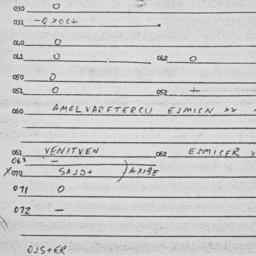 030 O
031 -QXOC+
040 O
041 O 042 O
050 O
051 O 052 +
060 AMELVADFTERCU ESMICN XX
061 VENITVEN 062 ESMICER X
063 -
X070 SAJD+ ) AXIBE
071 O
072 -
OJS+ER